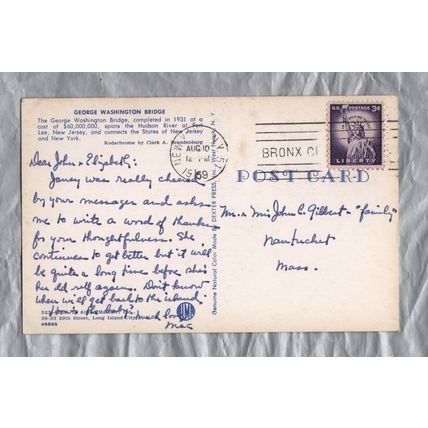 GEORGE WASHINGTON BRIDGE
The George Washington Bridge, completed in 1931 at a
cost of $60,000,000, spans the Hudson River at Fort
Lee, New Jersey, and connects the States of New Jersey
and New York.
Kodachrome by Clark A. Brandenburg
Dear John & Elizabeth:
Janey was really cheered
by your messages and asks
me to write a word of thanks
for your thoughtfulness. She
continues to get better but it will
be quite a long time before she's
her old self again. Don't know
when will get back to the island.
How's the baby?
Much love
Mac
39-32 29th Street, Long Island City
49885
Genuine Natural Color Made By DEXTER PRESS, N. Y.
NEW
AUG 10
12 PM
1959
BRONX
U.S. POSTAGE
3¢
LIBERTY
POST CARD
Mr. & Mrs John C. Gilbert & "family"
Nantucket
Mass.